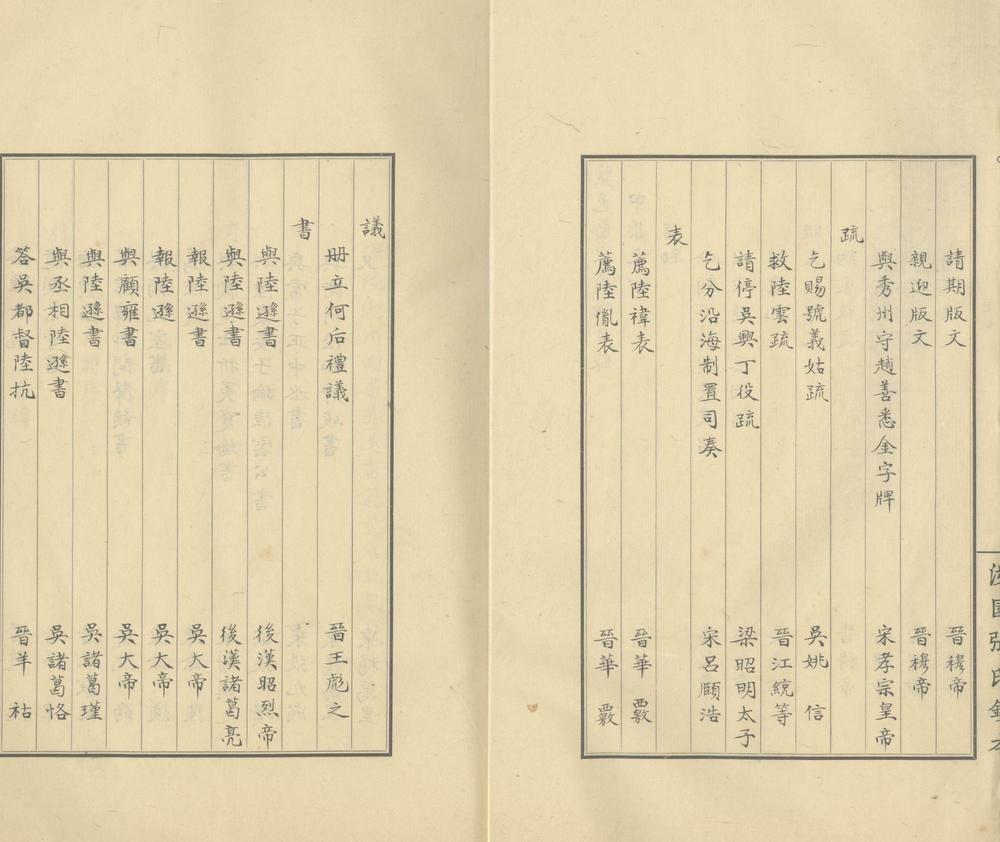 請期版文 晉穆帝
親迎版文 晉穆帝
與秀州守趙善悉金字牌 宋孝宗皇帝
疏
乞賜號義姑疏 吳姚信
救陸雲疏 晉江統等
請停吳興丁役疏 梁昭明太子
乞分沿海制置司奏 宋呂頤浩
表
薦陸禕表 晉華覈
薦陸胤表 晉華覈
議
冊立何后禮議 晉王彪之
書
與陸遜書 後漢昭烈帝
與陸遜書 後漢諸葛亮
報陸遜書 吳大帝
報陸遜 吳大帝
與顧雍書 吳大帝
與陸遜書 吳諸葛瑾
與丞相陸遜書 吳諸葛恪
答吳都督陸抗 晉羊祜